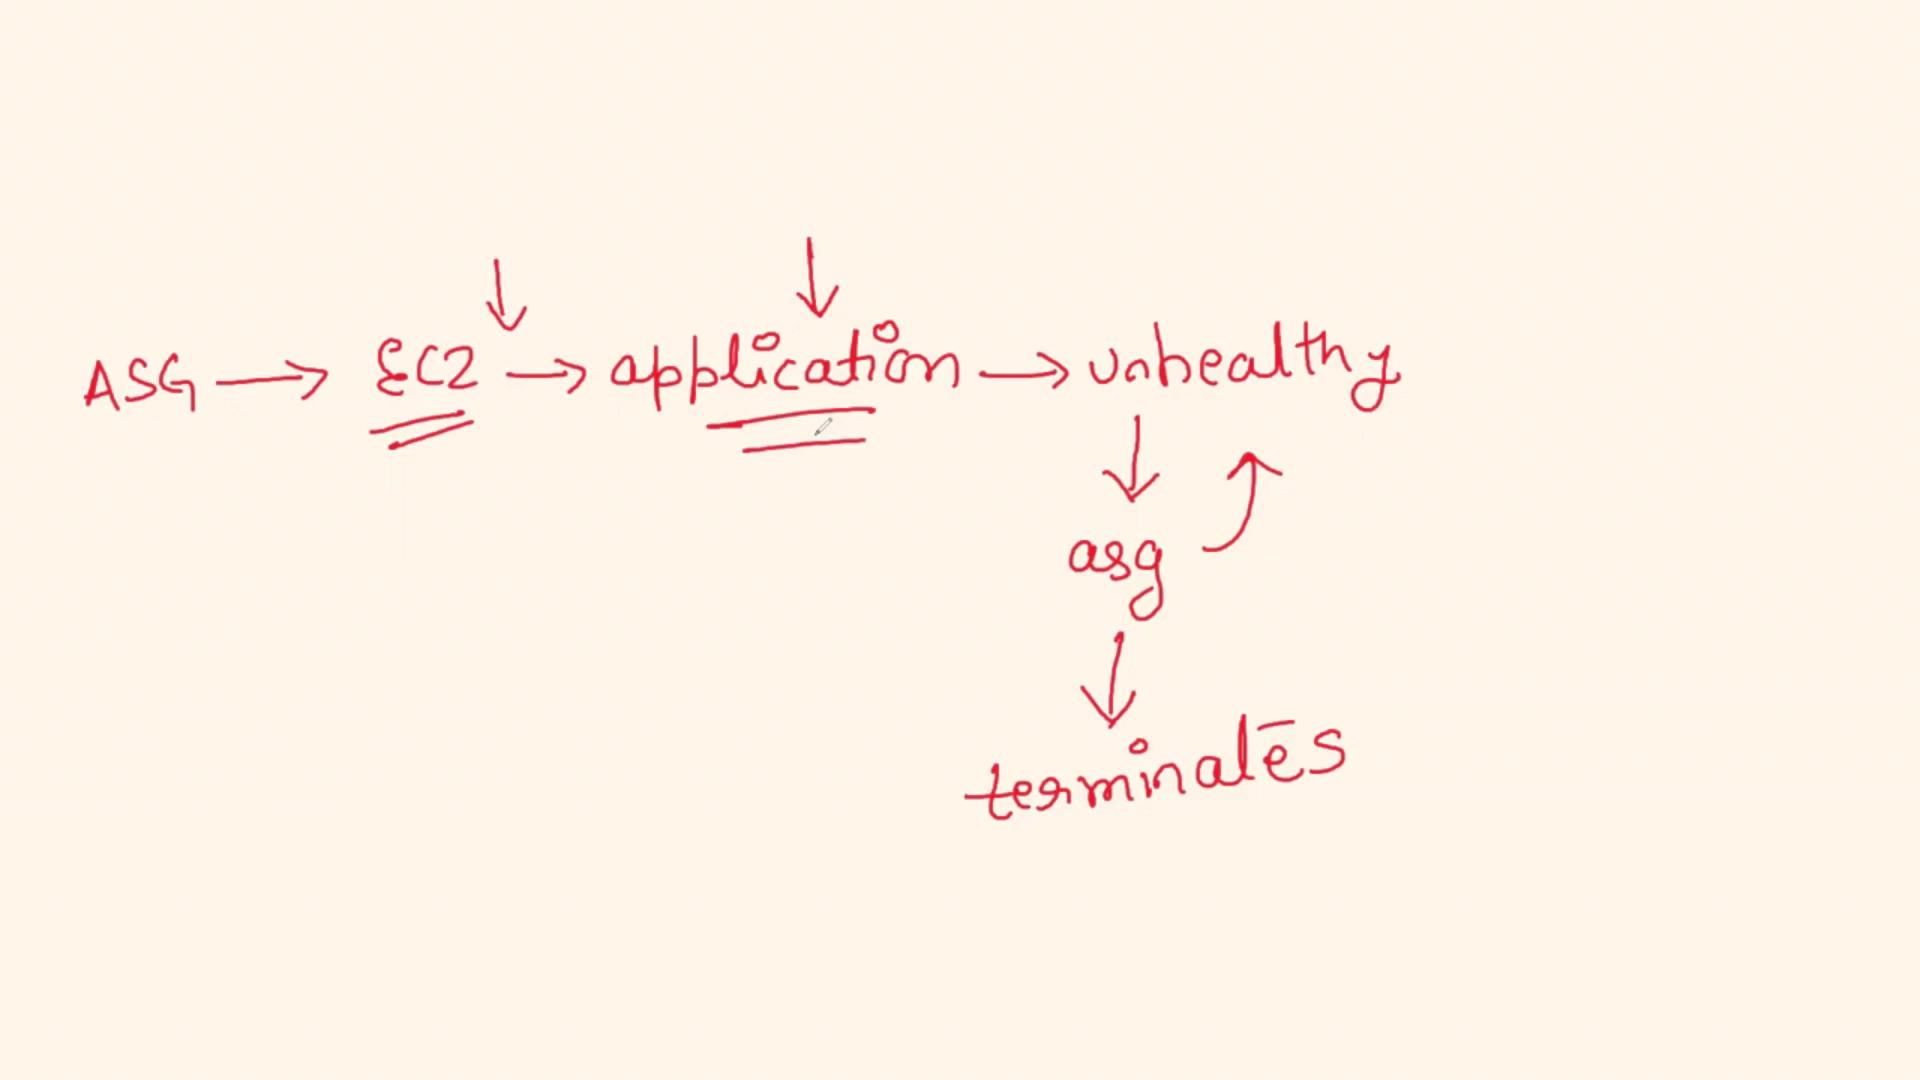 ASG → EC2 → application → unhealthy
asg
terminates